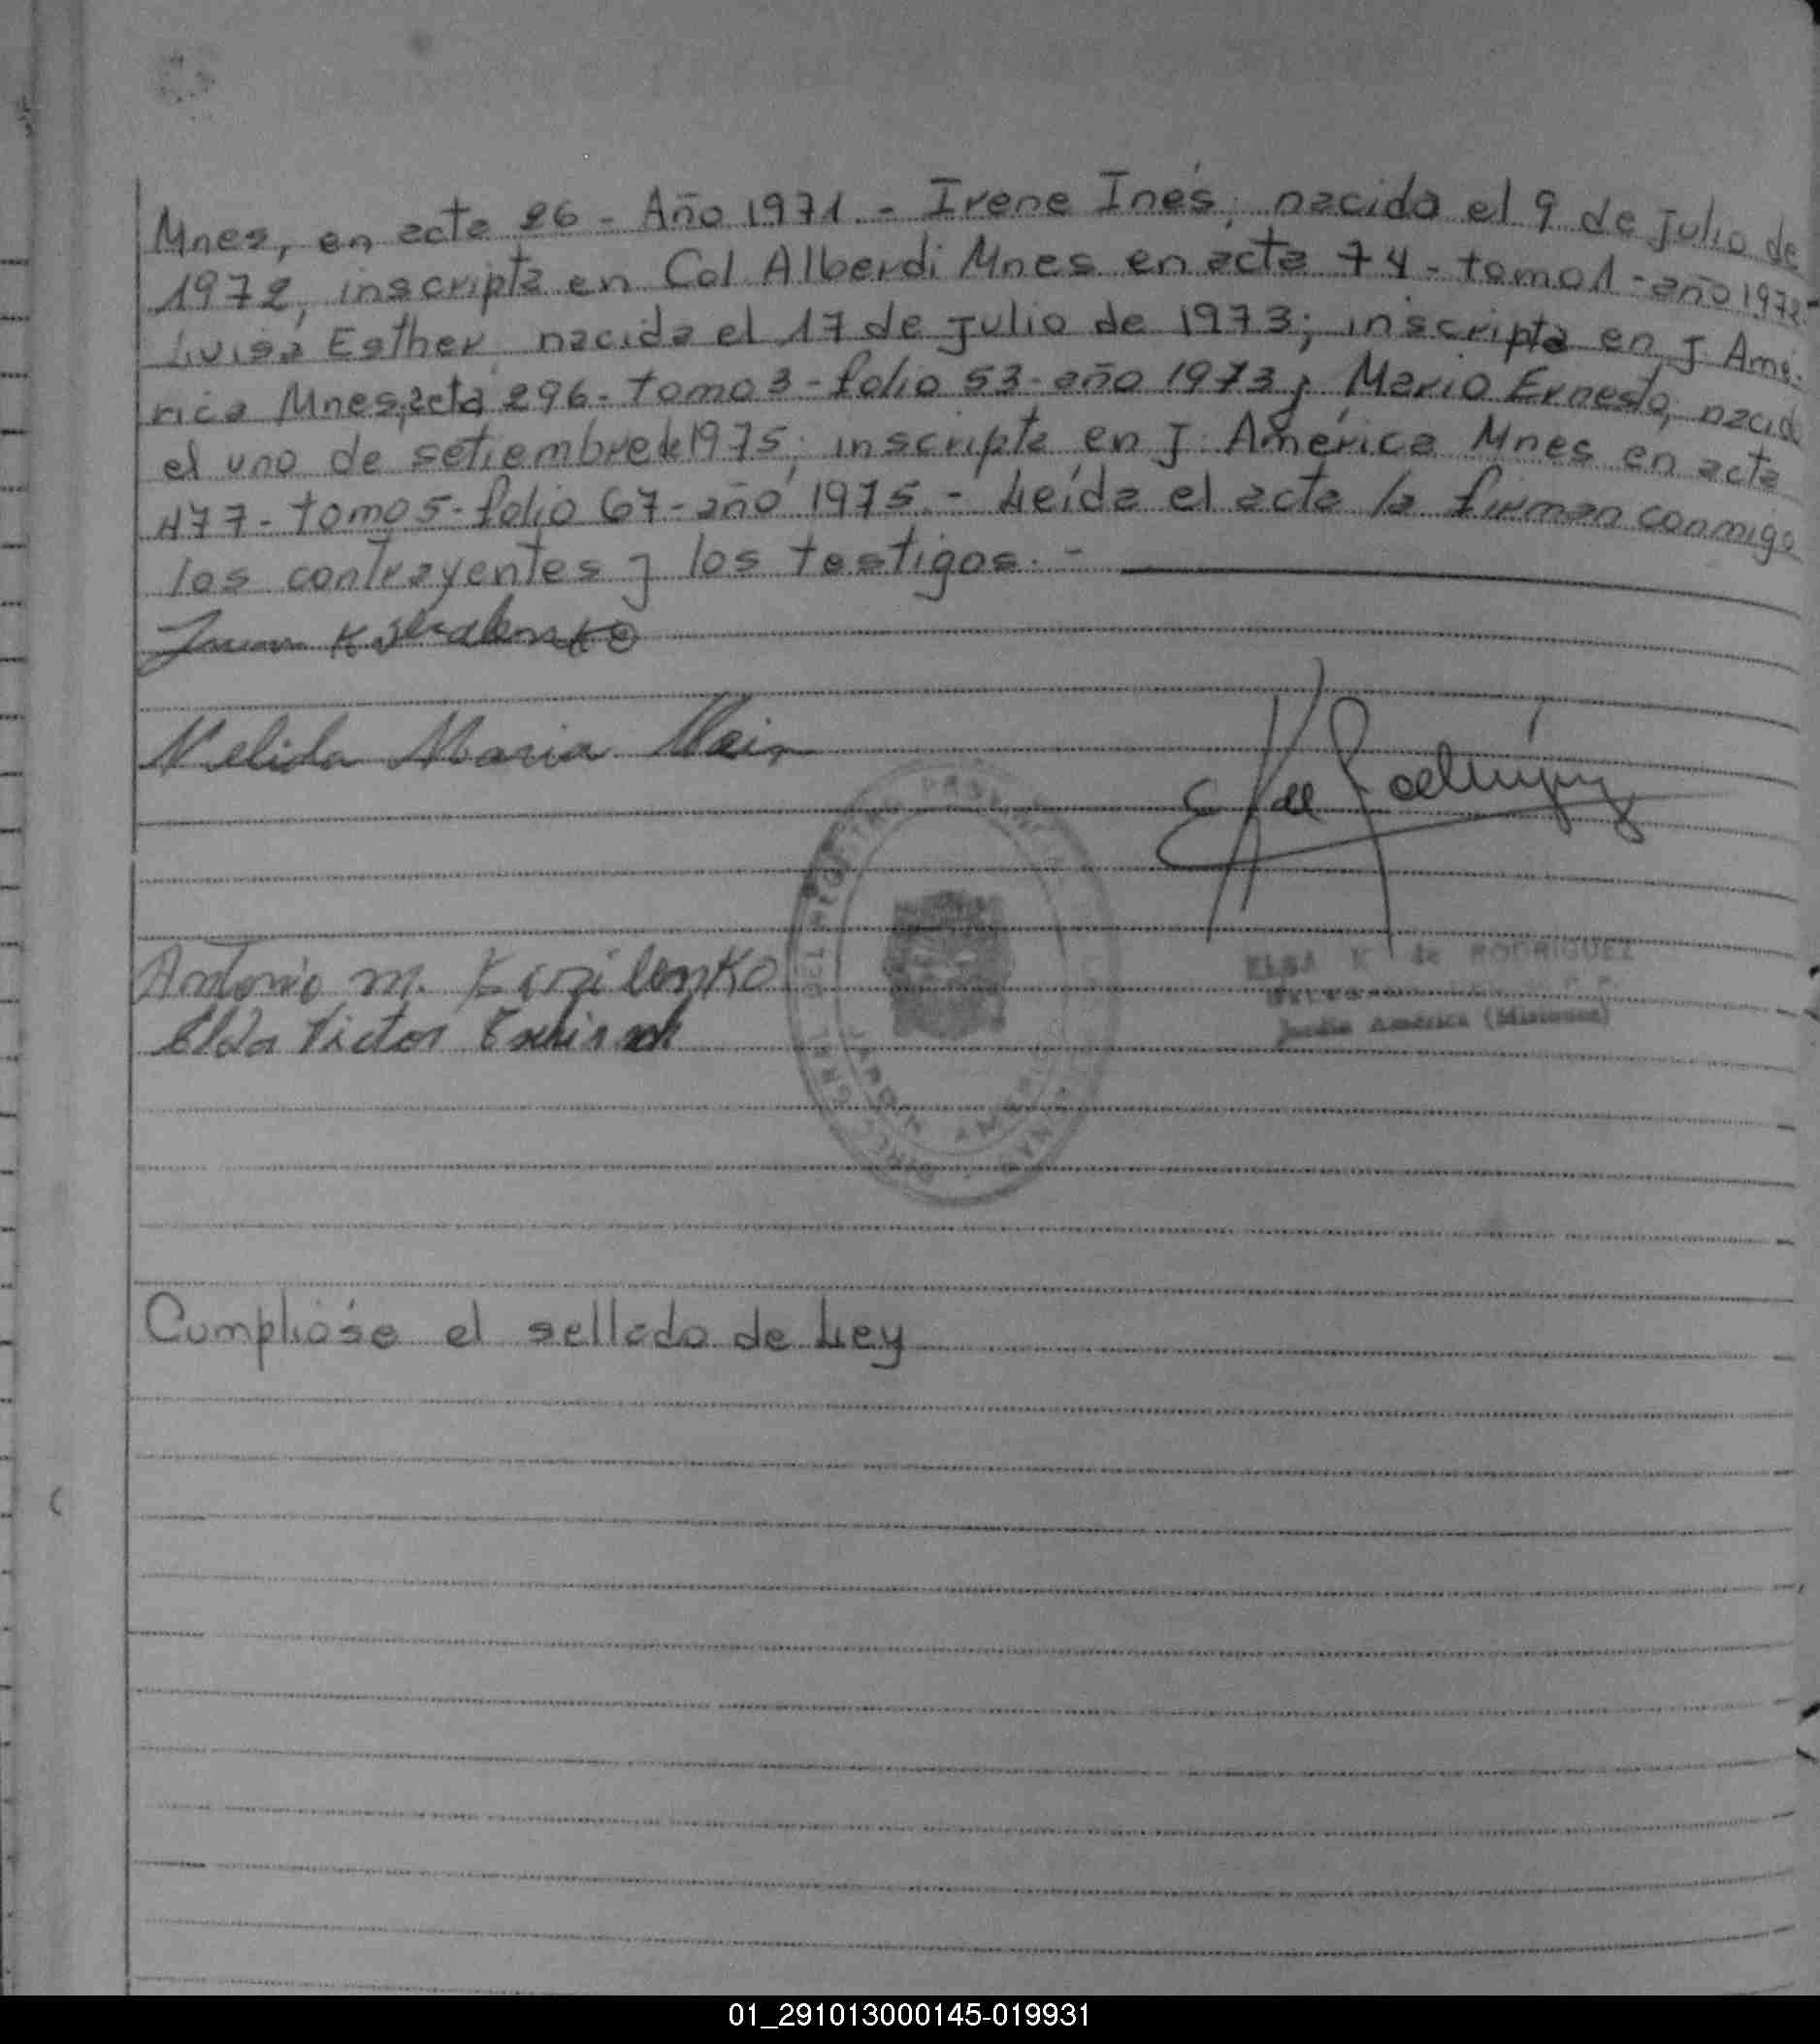 Mnes, en acta 26 - Año 1971 - Irene Inés, nacida el 9 de julio de
1972, inscripta en Col Alberdi Mnes en acta 74 - tomo 1 - año 1972 -
Luisa Esther nacida el 17 de julio de 1973; inscripta en J. Amé-
rica Mnes, acta 296 - tomo 3 - folio 53 - año 1973; Mario Ernesto, nacid
el uno de setiembre de 1975; inscripta en J. América Mnes en acta
477 - tomo 5 - folio 67 - año 1975 - Leída el acta la firman conmigo
los contrayentes y los testigos. -
Juan
Nelida Maria
E K de Rodríguez
Antonio M. KozilenKo
ELSA K de RODRIGUEZ
Elda Victor
Jardín América (Misiones)
Cumplióse el sellado de Ley
01_291013000145-019931